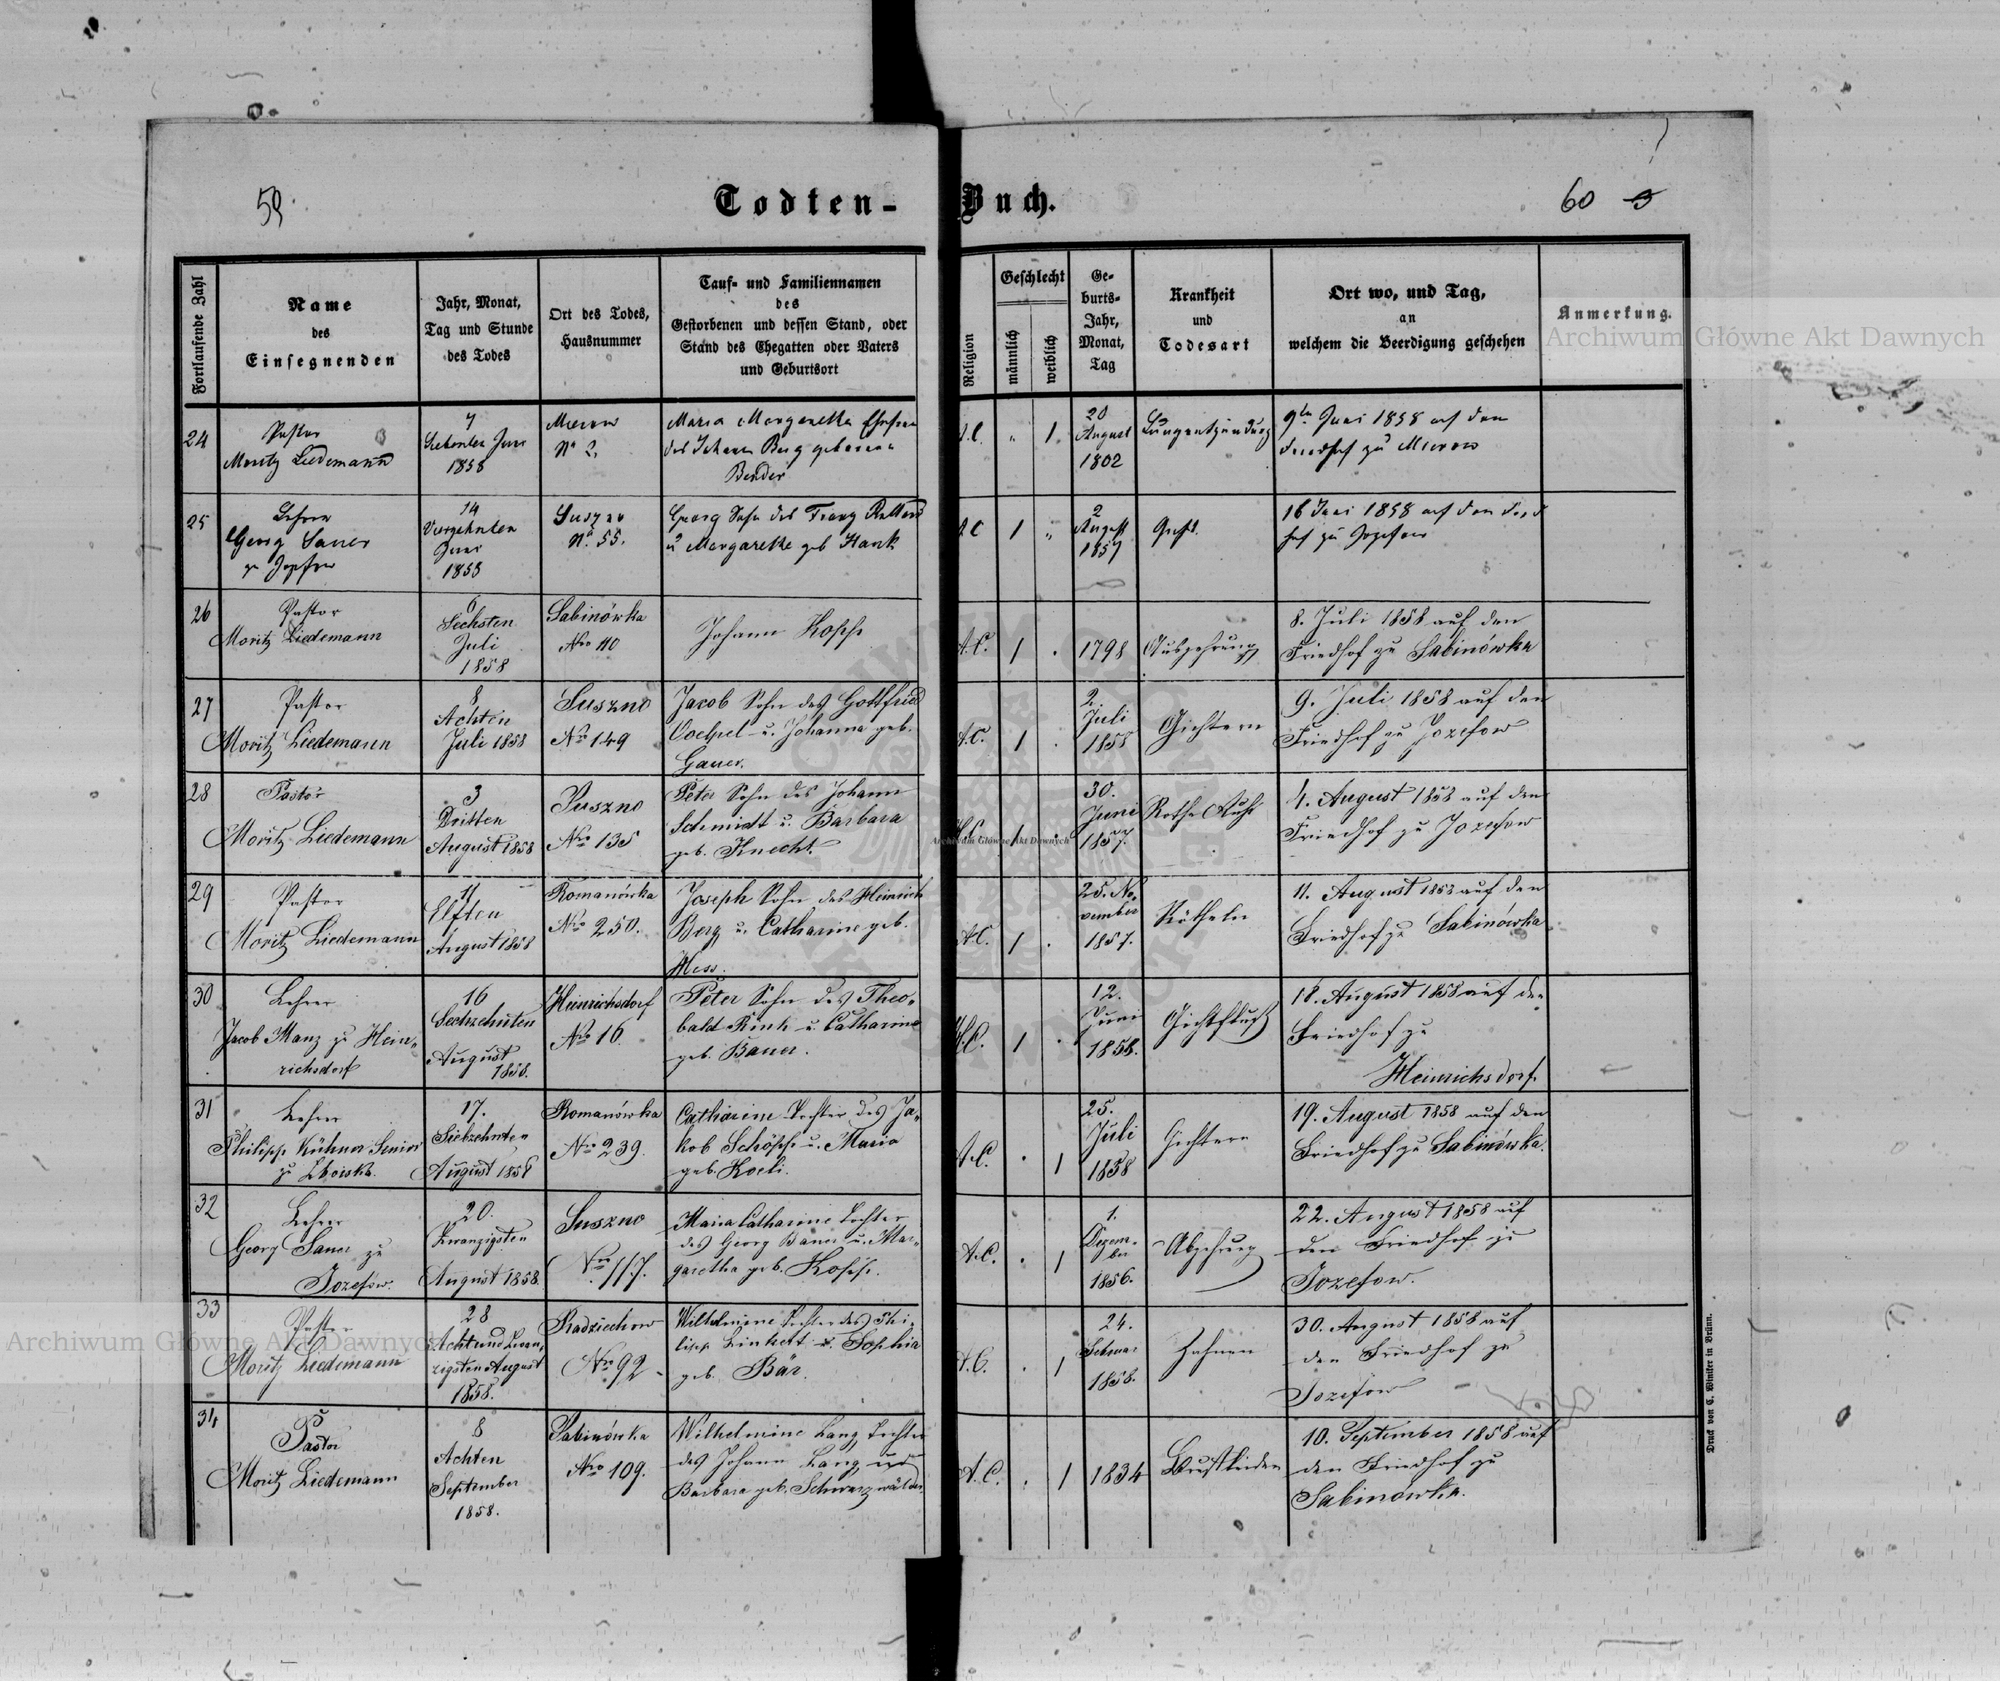 59.
Todten-Buch.
60
Fortlaufende Zahl
Name
des
Einsegnenden
Jahr, Monat,
Tag und Stunde
des Todes
Ort des Todes,
Hausnummer
Tauf- und Familiennamen
des
Gestorbenen und dessen Stand, oder
Stand des Ehegatten oder Vaters
und Geburtsort
Religion
Geschlecht
männlich
weiblich
Ge-
burts-
Jahr,
Monat,
Tag
Krankheit
und
Todesart
Ort wo, und Tag,
an
welchem die Beerdigung geschehen
Anmerkung.
24
Pastor
Moritz Liedemann
7
Siebenten Juni
1858
Mierow
No 2.
Maria Margaretha Ehefrau
des Johann Berg geborene
Bender
A.C.
"
1
20
August
1802
Lungenentzündung
9ten Juni 1858 auf dem
Friedhof zu Mierow
25
Lehrer
Georg Sauer
zu Jozefow
14
Vierzehnten
Juni
1858
Suszno
No. 55.
Georg Sohn des Franz
u Margarethe geb Hank
A C
1
"
2
August
1857
16 Juni 1858 auf dem Fried
hof zu Jozefow
26
Pastor
Moritz Liedemann
6
Sechsten
Juli
1858
Sabinówka
Nro 110
Johann Kopf
A.C.
1
.
1798
Auszehrung
8. Juli 1858 auf den
Friedhof zu Sabinówka
27
Pastor
Moritz Liedemann
8
Achten
Juli 1858
Suszno
Nro 149
Jacob Sohn des Gottfried
u. Johanna geb.
Gauer.
A.C.
1
.
2.
Juli
1858
Gichtern
9. Juli 1858 auf den
Friedhof zu Jozefow
28
Pastor
Moritz Liedemann
3
Dritten
August 1858
Suszno
Nro 135
Peter Sohn des Johann
Schmidt u. Barbara
geb. Knecht.
H.C.
1
.
30.
Juni
1857.
Rothe Ruhr
4. August 1858 auf den
Friedhof zu Jozefow
29
Pastor
Moritz Liedemann
11
Elften
August 1858
Romanówka
Nro 250.
Joseph Sohn des Heinrich
Berg u. Catharine geb.
Hess.
A.C.
1
.
25. No
vember
1857.
Rötheln
11. August 1858 auf den
Friedhof zu Sabinówka
30
Lehrer
Jacob Manz zu Hein-
richsdorf
16
Sechzehnten
August
1858.
Heinrichsdorf
Nro 16.
Peter Sohn des Theo-
bald Rink u. Catharine
geb. Bauer.
H.C.
1
.
12.
Juni
1858.
Gichtfluss
18. August 1858 auf den
Friedhof zu
Heinrichsdorf.
31
Lehrer
Philipp Kühner Senior
zu
17.
Siebzehnten
August 1858
Romanówka
Nro 239.
Catharine Tochter des Ja-
kob Schöpp u. Maria
geb.
A.C.
.
1
25.
Juli
1858
Gichtern
19. August 1858 auf den
Friedhof zu Sabinówka.
32
Lehrer
Georg Sauer zu
Jozefów.
20.
Zwanzigsten
August 1858.
Suszno
Nro 117.
Maria Catharine Tochter
des Georg Bauer u. Mar-
garetha geb. Kopf.
A.C.
.
1
1.
Dezem-
ber
1856.
Abzehrung
22. August 1858 auf
den Friedhof zu
Jozefow.
33
Pastor
Moritz Liedemann
28
Achtundzwan-
zigsten August
1858.
Radziechow
Nro 92
Wilhelmine Tochter des Phi-
lipp u. Sophia
geb. Bär.
A.C.
.
1
24.
Februar
1858.
Zahnen
30. August 1858 auf
den Friedhof zu
Jozefow
34
Pastor
Moritz Liedemann
8
Achten
September
1858.
Sabinówka
Nro 109.
Wilhelmine Lang Tochter
des Johann Lang und
Barbara geb. Schwarzwälder
A.C.
.
1
1834
Brustleiden
10. September 1858 auf
den Friedhof zu
Sabinówka.
Druck von C. Winiker in Brünn.
Archiwum Główne Akt Dawnych
Archiwum Główne Akt Dawnych
Archiwum Główne Akt Dawnych